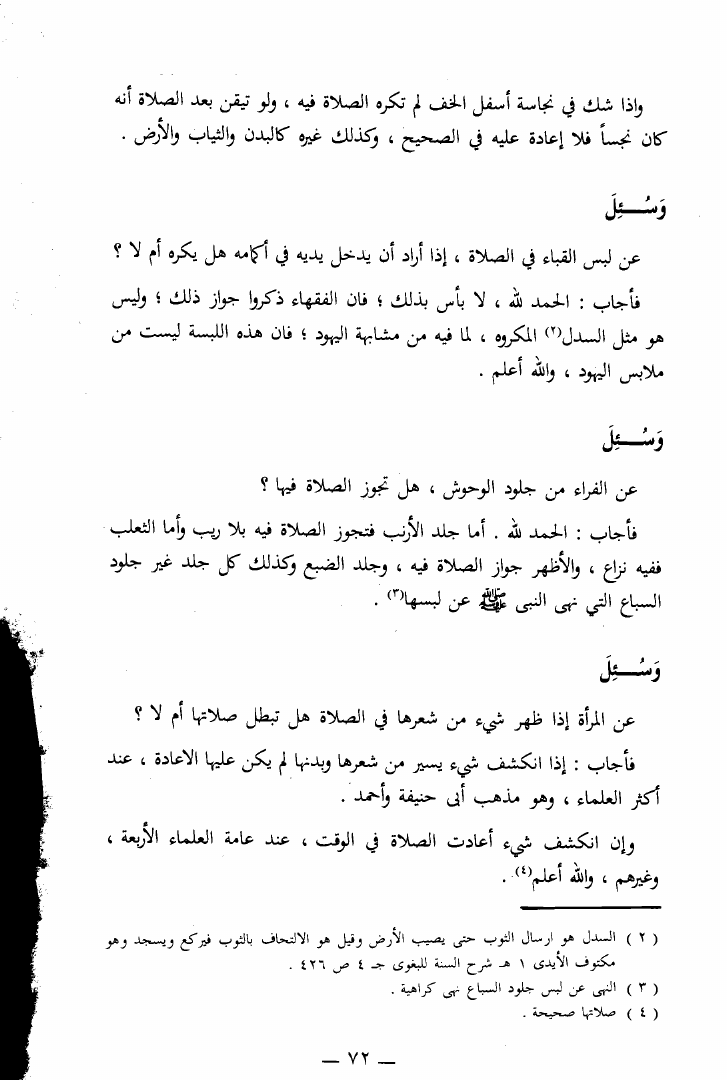 واذا شك في نجاسة أسفل الخف لم تكره الصلاة فيه ، ولو تيقن بعد الصلاة أنه
كان نجساً فلا إعادة عليه في الصحيح ، وكذلك غيره كالبدن والثياب والأرض .
وَسُـــئِلَ
عن لبس القباء في الصلاة ، إذا أراد أن يدخل يديه في أكمامه هل يكره أم لا ؟
فأجاب : الحمد لله ، لا بأس بذلك ؛ فان الفقهاء ذكروا جواز ذلك ؛ وليس
هو مثل السدل(٢) المكروه ، لما فيه من مشابهة اليهود ؛ فان هذه اللبسة ليست من
ملابس اليهود ، والله أعلم .
وَسُـــئِلَ
عن الفراء من جلود الوحوش ، هل تجوز الصلاة فيها ؟
فأجاب : الحمد لله . أما جلد الأرنب فتجوز الصلاة فيه بلا ريب وأما الثعلب
ففيه نزاع ، والأظهر جواز الصلاة فيه ، وجلد الضبع وكذلك كل جلد غير جلود
السباع التي نهى النبى ﷺ عن لبسها(٣) .
وَسُـــئِلَ
عن المرأة إذا ظهر شيء من شعرها في الصلاة هل تبطل صلاتها أم لا ؟
فأجاب : إذا انكشف شيء يسير من شعرها وبدنها لم يكن عليها الاعادة ، عند
أكثر العلماء ، وهو مذهب أبى حنيفة وأحمد .
وإن انكشف شيء أعادت الصلاة في الوقت ، عند عامة العلماء الأربعة ،
وغيرهم ، والله أعلم(٤) .
( ٢ ) السدل هو ارسال الثوب حتى يصيب الأرض وقيل هو الالتحاف بالثوب فيركع ويسجد وهو
مكتوف الأيدى ١ هـ شرح السنة للبغوى جـ ٤ ص ٤٢٦ .
( ٣ ) النهى عن لبس جلود السباع نهى كراهية .
( ٤ ) صلاتها صحيحة .
— ٧٢ —